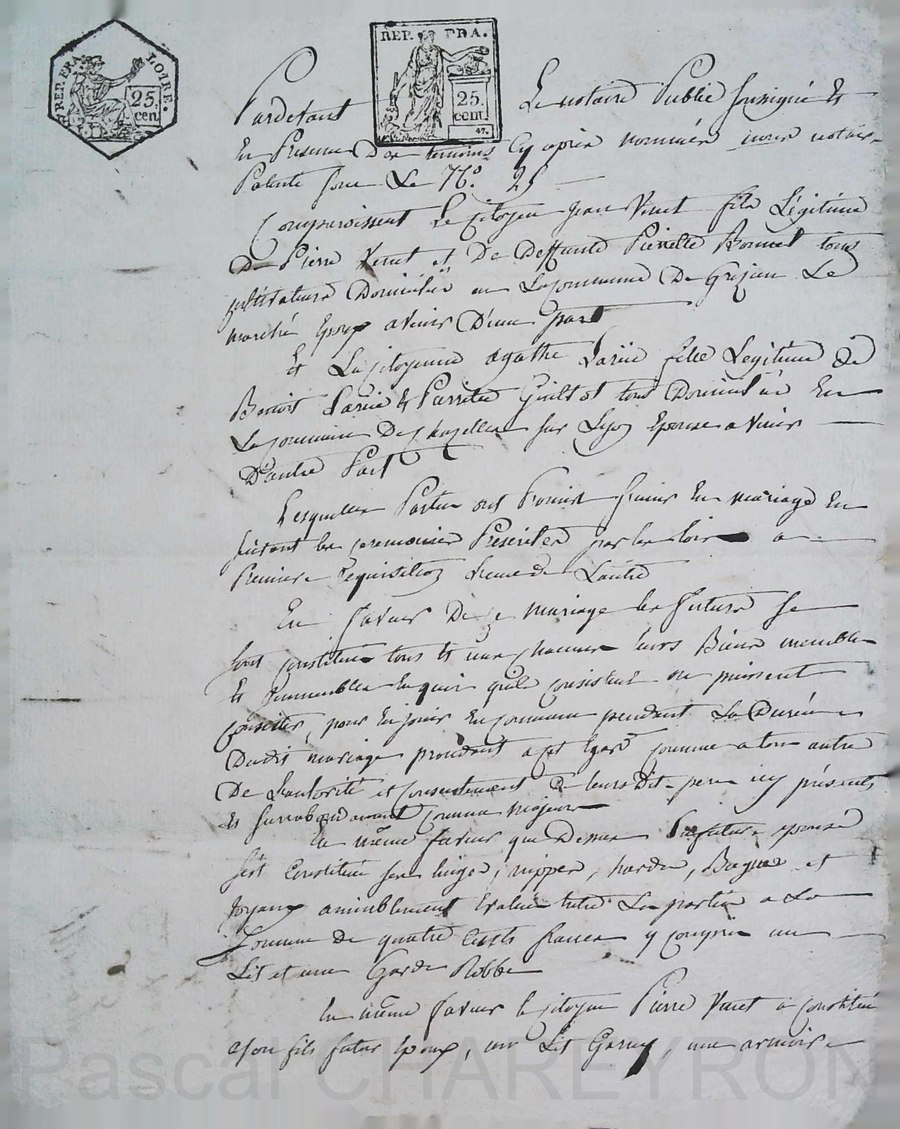 REP. FRA. LOIRE.
25. cen.
REP. FRA.
25. cent.
47.
Pardevant Le notaire Public soussigné Et
En Presence Des temoins Cy après nommés
Patente sous Le N.o 25
Comparoissent Le Citoyen Jean Viret fils Légitime
De Pierre Viret et De Deffunte Pierrette Bonnet tous
cultivateurs Domiciliés en La Commune De Grézieu Le
marché Epoux avenir D'une part
Et La Citoyenne agathe fille Légitime de
Benoit & Pierrette tous Domiciliés En
La Commune De Chazelles sur Lyon Epouse avenir
D'autre Part
Lesquelles Parties ont Promis s'unir En mariage En
suivant les ceremonies Prescrites par les loix a
Premiere Requisition L'une de L'autre
En faveur De ce mariage les futurs se
sont constitués tous Et un chacun leurs Biens meubles
Et immeubles En quoi qu'ils consistent ou puissent
Consister, pour En jouir En commun pendant La Durée
Dudit mariage procedant a cet Egard comme a tout autre
De L'autorité et consentement De leurs Dit pere icy présents
Et surabondament comme majeurs
En même faveur que Dessus La future epouse
s'est Constitué ses linges, nippes, hardes, Bagues et
Joyaux amiablement Evalués entre Les parties a La
somme de quatre cents francs y compris un
Lit et une Garde Robbe
En même faveur le citoyen Pierre Viret a constitué
a son fils futur Epoux, un Lit Garny, une armoire
Pascal CHAREYRON